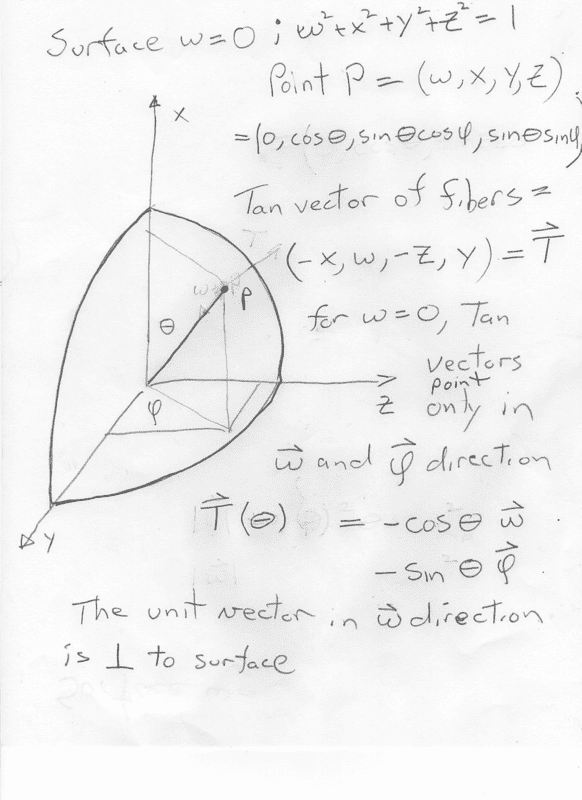 Surface w=0 ; w²+x²+y²+z² = 1
Point P = (w, x, y, z) ;
= (0, cosθ, sinθcosφ, sinθsinφ)
x
Tan vector of fibers =
T
(-x, w, -z, y) = T⃗
P
θ
for w=0, Tan
vectors
point
z
only in
φ
w⃗ and φ⃗ direction
T⃗(θ) = -cosθ w⃗
y
-sinθ φ⃗
The unit vector in w⃗ direction
is ⊥ to surface